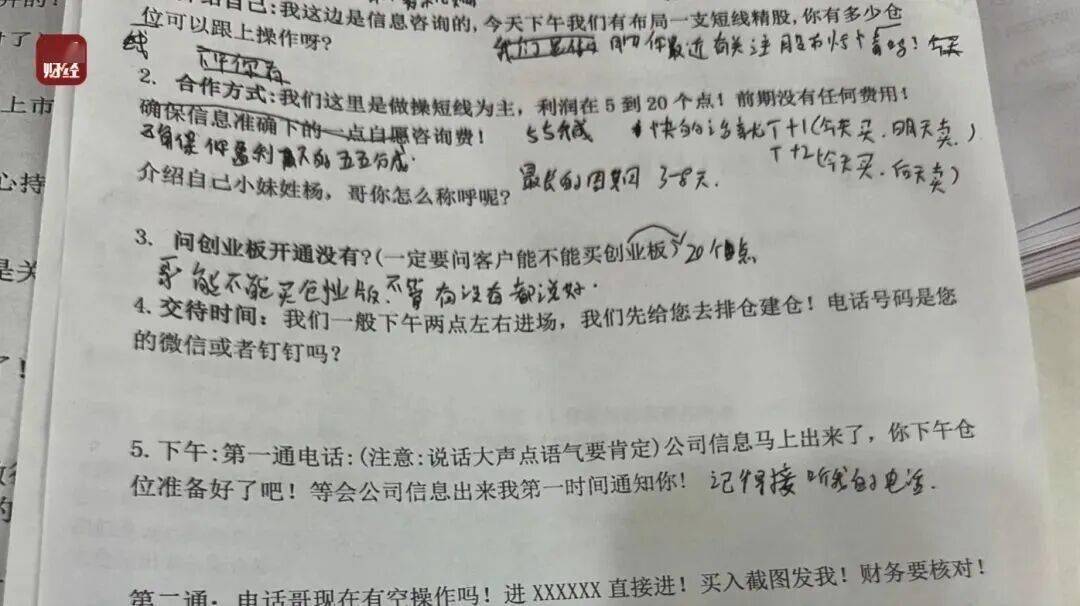 绍自己:我这边是信息咨询的,今天下午我们有布局一支短线精股,你有多少仓
位可以跟上操作呀?
财经
线
你最近有关注股市行情吗!今天
下午你看
2. 合作方式:我们这里是做操短线为主,利润在5到20个点!前期没有任何费用!
确保信息准确下的一点自愿咨询费!
55分成 快的话就T+1(今天买.明天卖.)
确保你盈利 的五五分成.
T+2(今天买.后天卖)
介绍自己小妹姓杨,哥你怎么称呼呢?
最长的周期 3-8天.
3. 问创业板开通没有?(一定要问客户能不能买创业板)
20个点
能不能买创业版.不管有没有都说好.
4. 交待时间:我们一般下午两点左右进场,我们先给您去排仓建仓!电话号码是您
的微信或者钉钉吗?
5. 下午:第一通电话:(注意:说话大声点语气要肯定)公司信息马上出来了,你下午仓
位准备好了吧!等会公司信息出来我第一时间通知你!
记得接听我的电话.
第二通:电话哥现在有空操作吗!进XXXXXX直接进!买入截图发我!财务要核对!
上市
心持
是关
了!
的